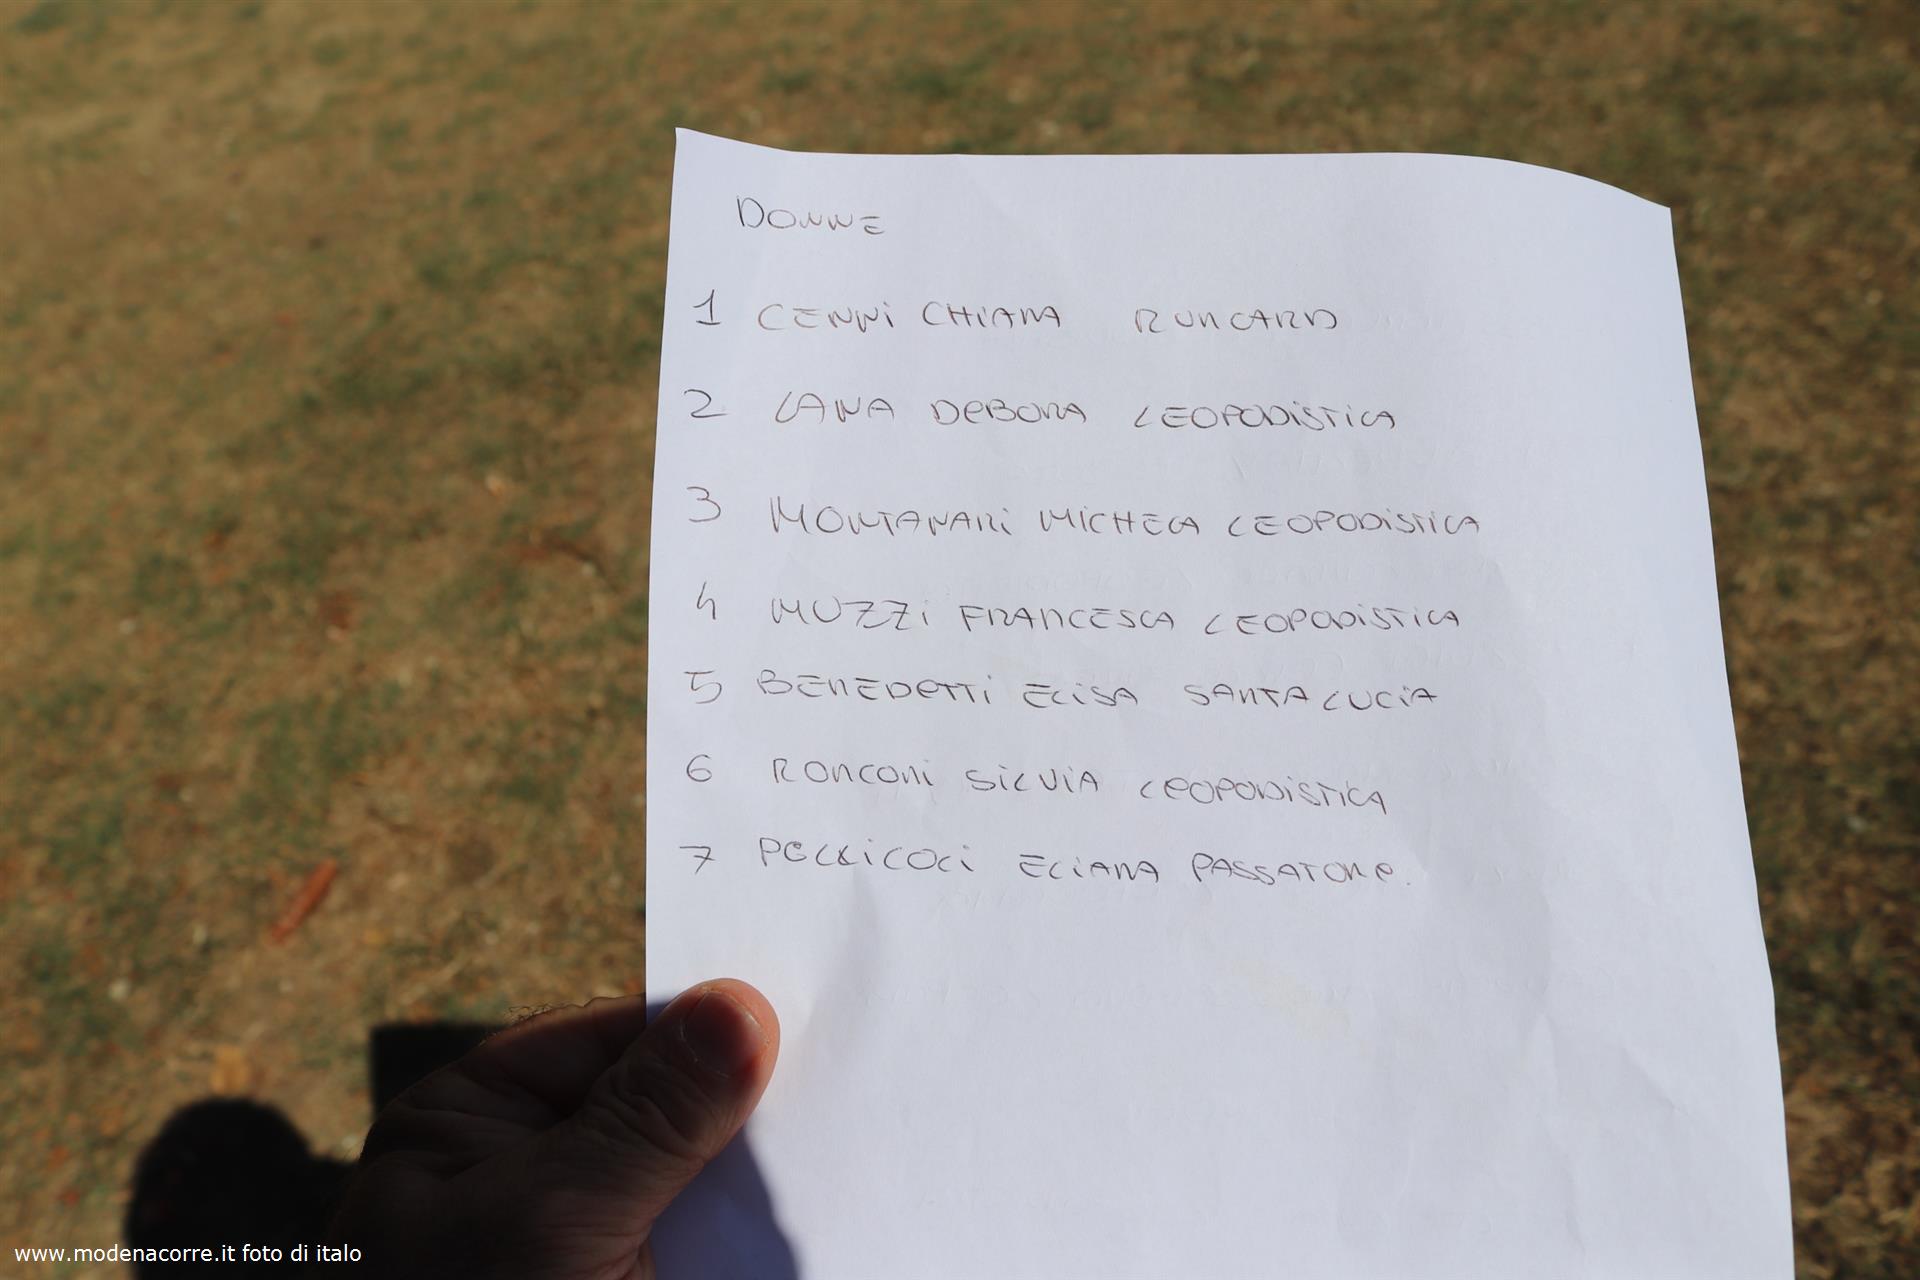 DONNE
1 CENNI CHIARA RUNCARD
2 LANA DEBORA LEOPODISTICA
3 MONTANARI MICHELA LEOPODISTICA
4 MUZZI FRANCESCA LEOPODISTICA
5 BENEDETTI ELISA SANTA LUCIA
6 RONCONI SILVIA LEOPODISTICA
7 PELLICOLI ELIANA PASSATORE.
www.modenacorre.it foto di italo